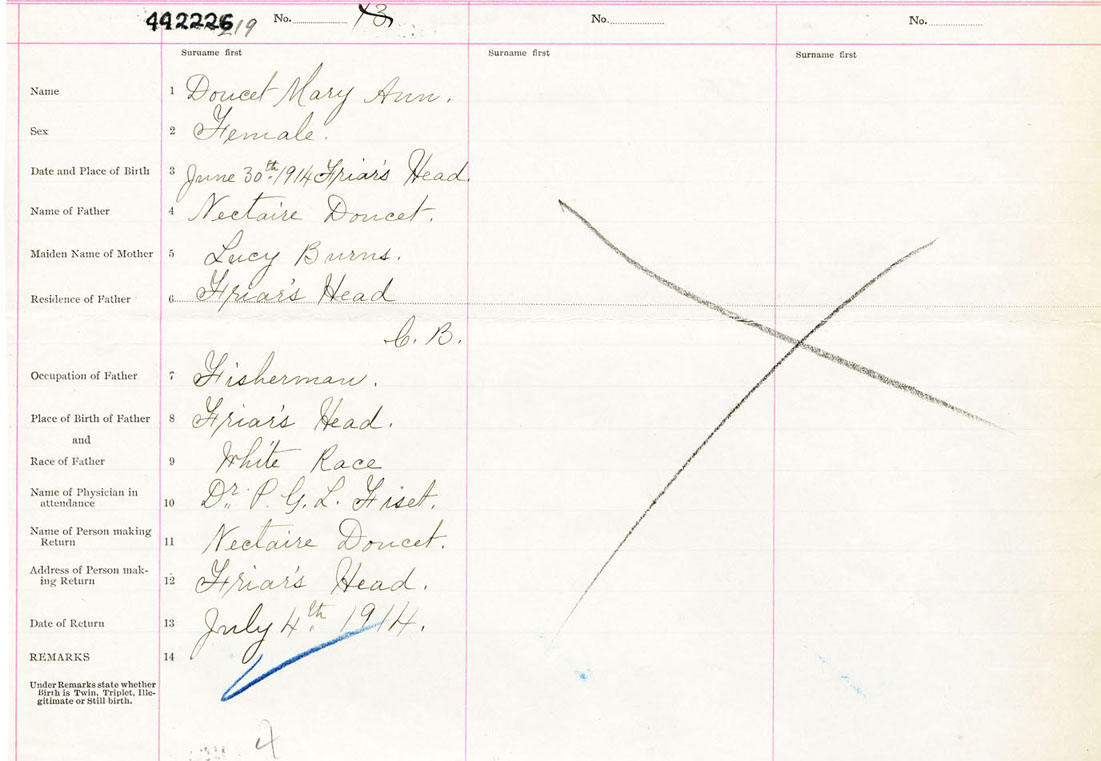 492226
219
No. 43
No.
No.
Surname first
Surname first
Surname first
Name 1 Doucet Mary Ann.
Sex 2 Female.
Date and Place of Birth 3 June 30th 1914 Friar's Head.
Name of Father 4 Nectaire Doucet.
Maiden Name of Mother 5 Lucy Burns.
Residence of Father 6 Friar's Head
C. B.
Occupation of Father 7 Fisherman.
Place of Birth of Father 8 Friar's Head.
and
Race of Father 9 White Race
Name of Physician in
attendance 10 Dr. P. G. L. Fiset.
Name of Person making
Return 11 Nectaire Doucet.
Address of Person mak-
ing Return 12 Friar's Head.
Date of Return 13 July 4th 1914.
REMARKS 14
Under Remarks state whether
Birth is Twin, Triplet, Ille-
gitimate or Still birth.